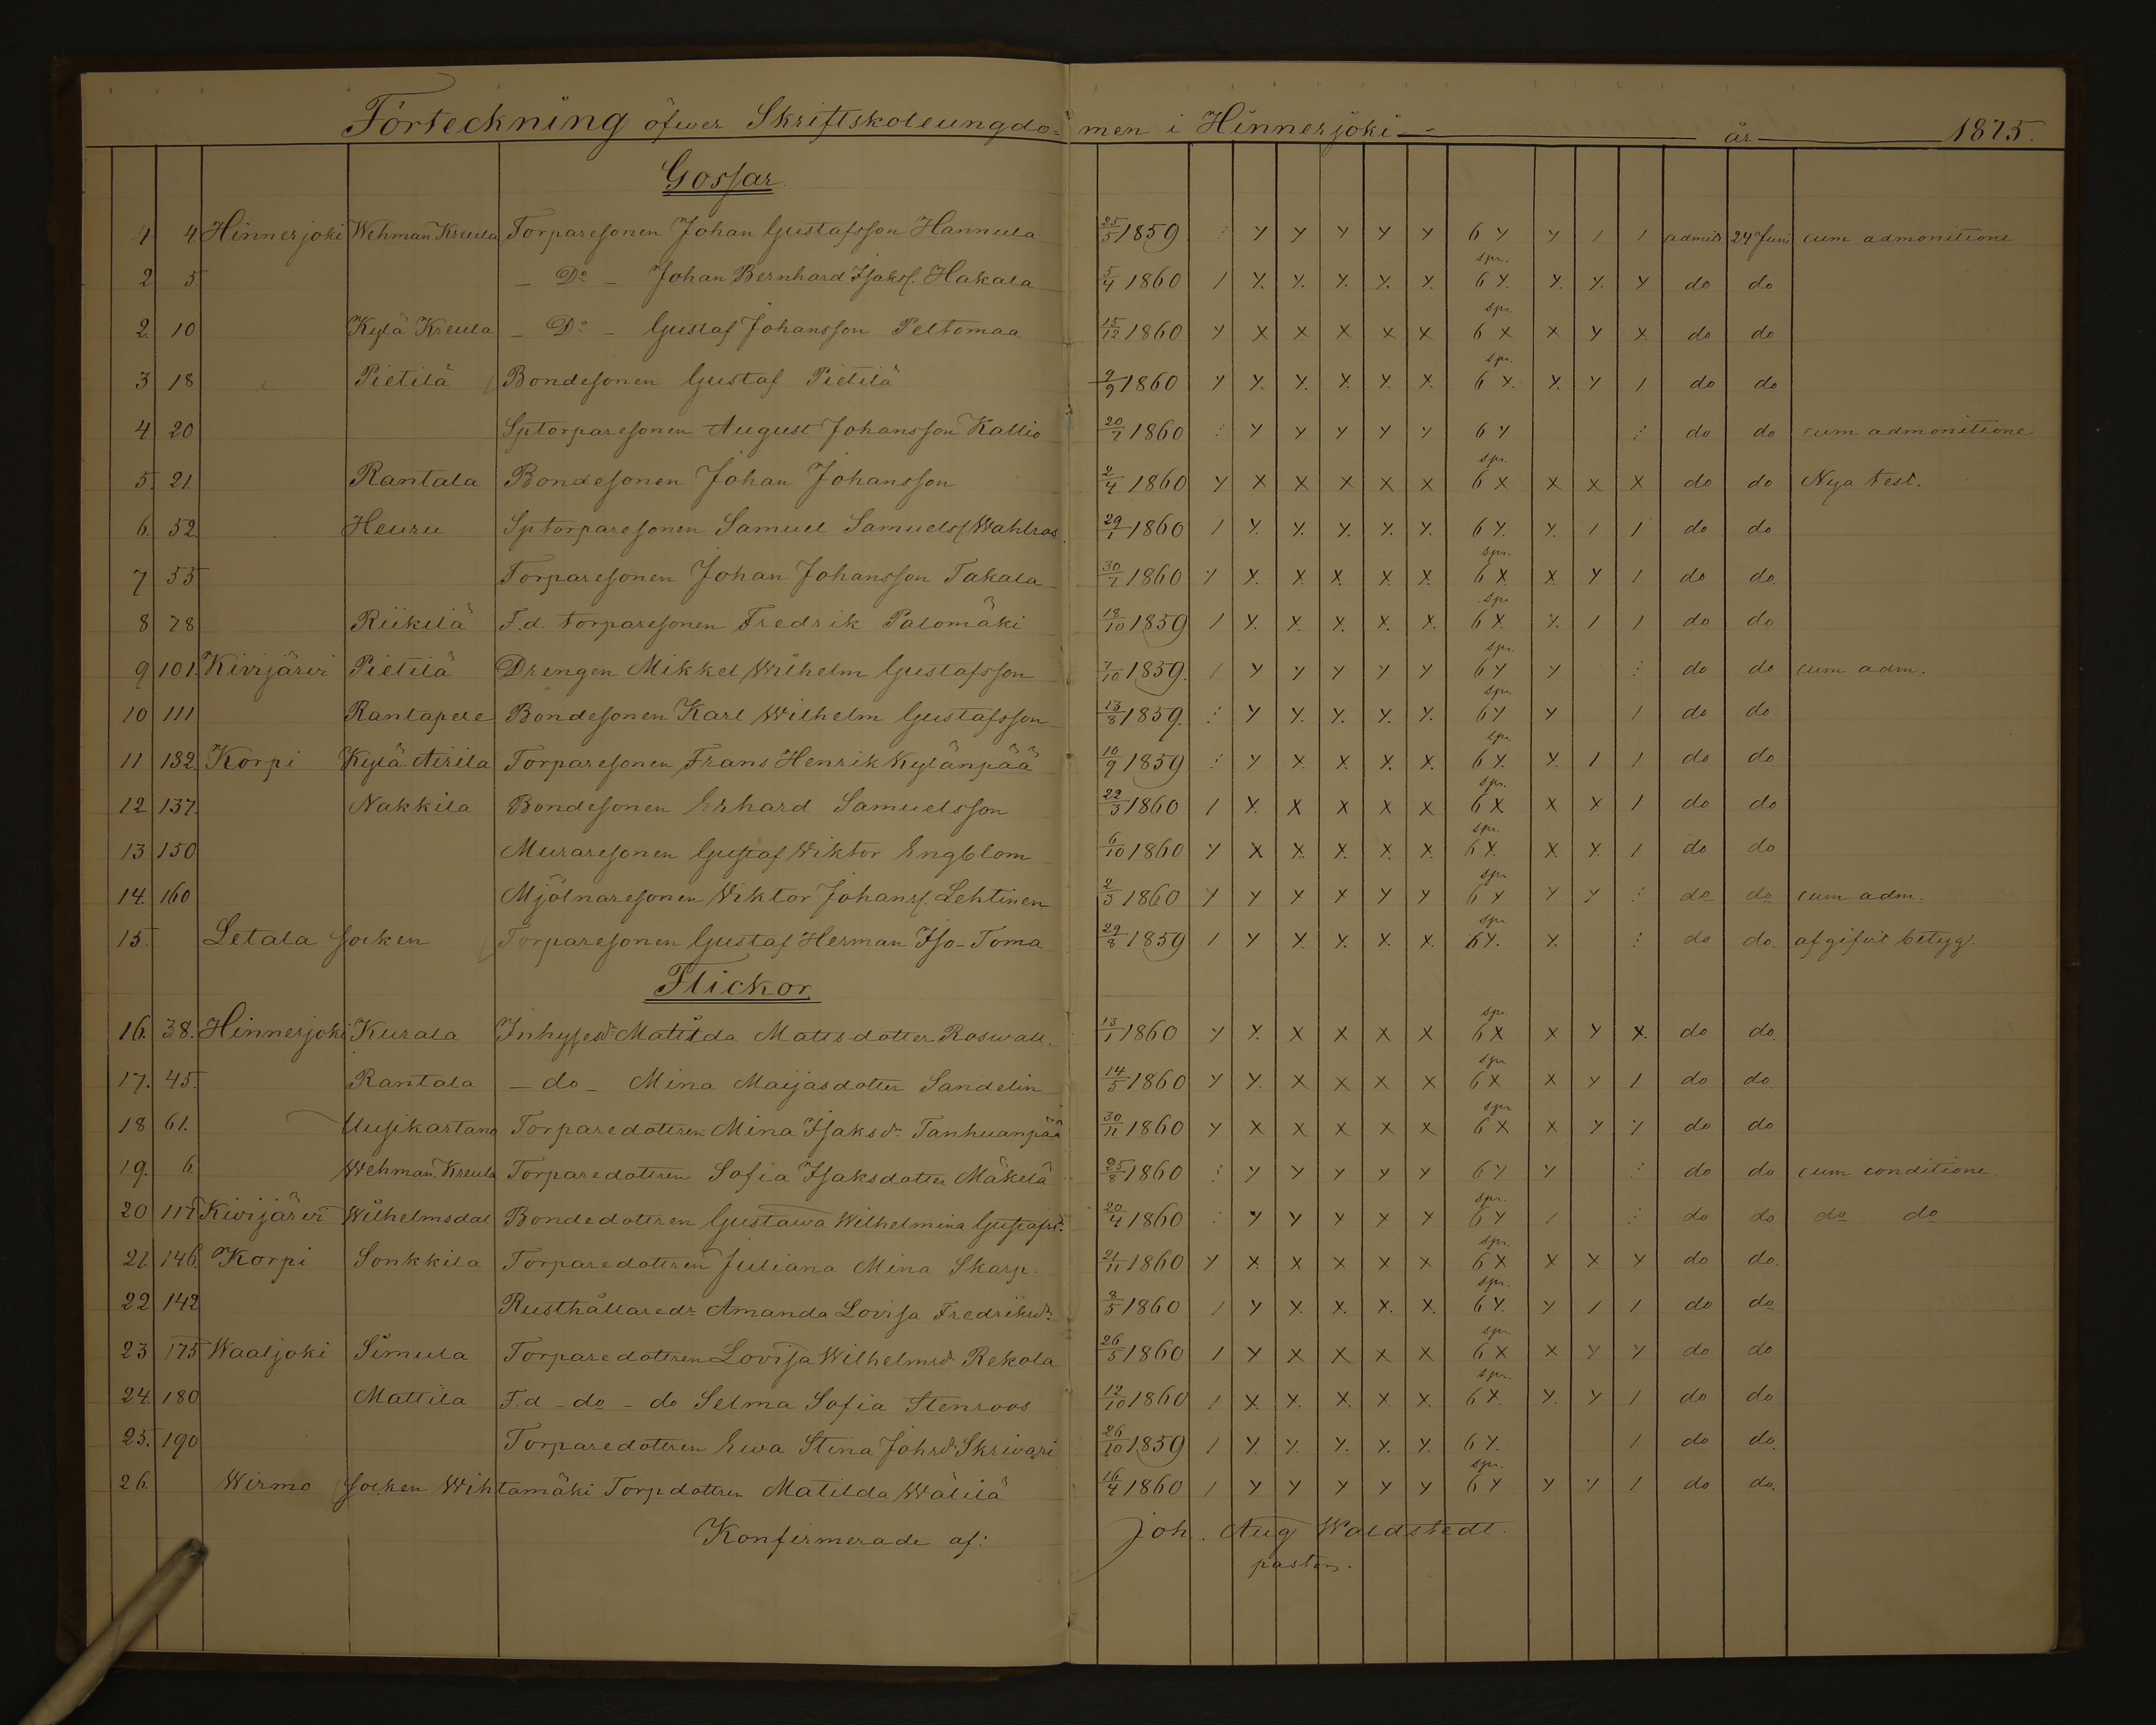 Förteckning öfwer Skriftskoleungdo-men i Hinnerjoki år 1875.
Gossar.
1 4. Hinnerjoki Wehman Kreula Torparesonen Johan Gustafsson Hannula 25/5 1859 y y y y y 6 y y / / admis 24 Juni cum admonitione
2 5. – Do – Johan Bernhard Isakss. Hakala 5/4 1860 / y. y. y. y. y. spr. 6 y. y. y. y do do
2. 10 Kylä Kreula – Do – Gustaf Johansson Peltomaa 15/12 1860 y x x x x x spr. 6 x x y x. do do
3 18 Pietilä Bondesonen Gustaf Pietilä 9/9 1860 y y. y. y. y. x. spr. 6 y. y. y / do do
4 20 Sptorparesonen August Johansson Kallio 20/7 1860 y y y y y 6 y do do cum admonitione
5. 21. Rantala Bondesonen Johan Johansson 2/4 1860 y x x x x x spr. 6 x x x x do do Nya Test.
6. 52. Heuru Sptorparesonen Samuel Samuelss. Wahlros 29/1 1860 / y. y. y. y. y. 6 y. y. / / do do
7 55 Torparesonen Johan Johansson Takala 30/7 1860 y y. x. x. x. x. spr. 6 x x y / do do.
8 78 Riikilä F.d. torparesonen Fredrik Palomäki 18/10 1859 / y. x. x. x. x. spr. 6 y. y. / / do do
9 101. Kivijärvi Pietilä Drengen Mikkel Wilhelm Gustafsson 7/10 1859. / y y y y y spr. 6 y y do do cum adm.
10 111 Rantapere Bondesonen Karl Wilhelm Gustafsson 13/8 1859. y y. y. y. y. spr. 6 y y / do do
11 132 Korpi Kylä Airila Torparesonen Frans Henrik Kylänpää 10/9 1859 y x. x. x. x. spr. 6 y. y. / / do do
12. 137. Nakkila Bondesonen Erhard Samuelsson 22/3 1860 / y. x x x x spr. 6 x x x / do do
13 150 Muraresonen Gustaf Wiktor Engblom 6/10 1860 y x x. x. x. x. spr. 6 y. x y. / do do
14. 160 Mjölnaresonen Viktor Johanss. Lehtinen 2/3 1860 y y y x y y spr. 6 y y y do do cum adm.
15. Letala socken Torparesonen Gustaf Herman Iso-Toma 29/8 1859 / y y. y. x. x. spr. 6 y. y. do do. afgifvit betyg.
Flickor
16. 38. Hinnerjoki Kurala Inhysesdr Matilda Matsdotter Roswall. 13/1 1860 y y. x x x x spr. 6 x x y x. do do.
17. 45. Rantala – do – Mina Maijasdotter Sandelin 14/5 1860 y y. x x x x spr 6 x x y / do do.
18 61. Uusikartano Torparedottren Mina Isaksdr Tanhuanpää 30/11 1860 y x x x x x spr 6 x x y y do do
19. 6. Wehman Kreula Torparedottren Sofia Isaksdotter Mäkelä 25/8 1860 y y y y y 6 y y do do cum conditione.
20 117 Kivijärvi Wilhelmsdal Bondedottren Gustawa Wilhelmina Gustafsdr. 20/4 1860 y y y y y spr. 6 y / do do do do
21. 146. Korpi Sonkkila Torparedottren Juliana Mina Skarp. 21/11 1860 y x. x x x x spr. 6 x x x y do do.
22 142 Rusthållaredr Amanda Lovisa Fredriksdr. 8/5 1860 / y x. x. x. x. spr. 6 y. y / / do do
23 175 Waaljoki Simula Torparedottren Lovisa Wilhelmsdr Rekola 26/5 1860 / y x x x x spr 6 x x y y do do
24. 180 Mattila F.d – do – do Selma Sofia Stenroos 12/10 1860 / x x. x. x. x. spr. 6 x. y. y / do do
25. 190 Torparedottren Ewa Stina Johsdr Skrivari 26/10 1859 / y. y. y. y. y. 6 y. / do do.
26. Wirmo socken Wihtamäki Torpdottren Matilda Wälilä 16/4 1860 / y y y y y spr. 6 y y y / do do.
Konfirmerade af: Joh. Aug Waldstedt.
pastor.